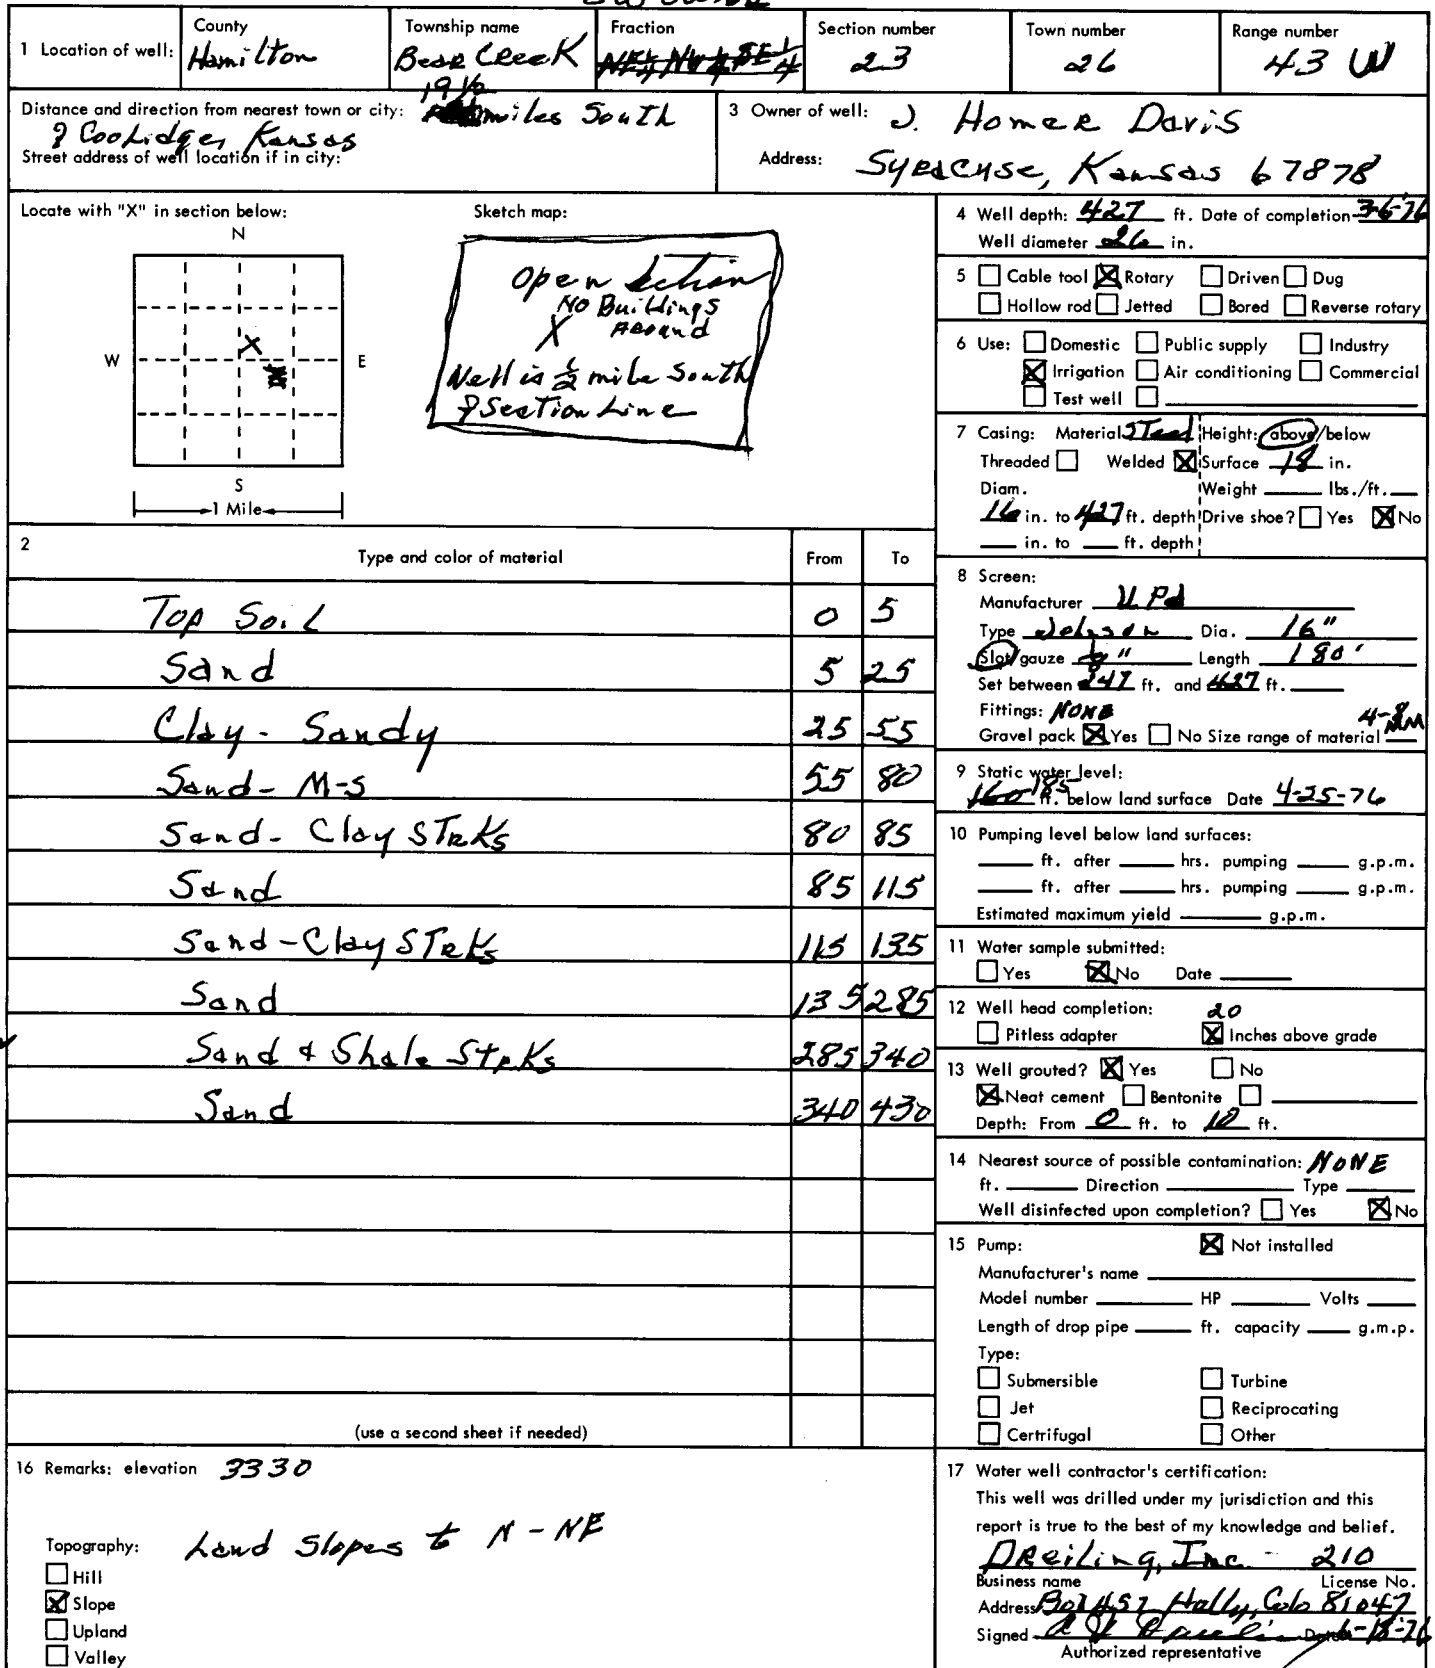 1 Location of well: County Hamilton Township name Bear Creek Fraction NE¼ NW¼ SE¼ Section number 23 Town number 26 Range number 43 W
Distance and direction from nearest town or city: 19½ miles South
of Coolidge, Kansas
Street address of well location if in city:
3 Owner of well: J. Homer Davis
Address: Syracuse, Kansas 67878
Locate with "X" in section below:
N
W
E
S
1 Mile
Sketch map:
Open Section
No Buildings
Around
X
Well is ½ mile South
of Section Line
2
Type and color of material From To
Top Soil 0 5
Sand 5 25
Clay - Sandy 25 55
Sand - M-S 55 80
Sand - Clay STRKs 80 85
Sand 85 115
Sand - Clay STRKs 115 135
Sand 135 285
Sand & Shale STRKs 285 340
Sand 340 430
(use a second sheet if needed)
4 Well depth: 427 ft. Date of completion 3-6-76
Well diameter 26 in.
5 Cable tool Rotary Driven Dug
Hollow rod Jetted Bored Reverse rotary
6 Use: Domestic Public supply Industry
Irrigation Air conditioning Commercial
Test well
7 Casing: Material Steel Height: above/below
Threaded Welded Surface 18 in.
Diam. Weight lbs./ft.
16 in. to 427 ft. depth Drive shoe? Yes No
in. to ft. depth
8 Screen:
Manufacturer
Type Johnson Dia. 16"
Slot/gauze ⅛" Length 180'
Set between 247 ft. and 427 ft.
Fittings: NONE
Gravel pack Yes No Size range of material 4-8 MM
9 Static water level:
160 185 ft. below land surface Date 4-25-76
10 Pumping level below land surfaces:
ft. after hrs. pumping g.p.m.
ft. after hrs. pumping g.p.m.
Estimated maximum yield g.p.m.
11 Water sample submitted:
Yes No Date
12 Well head completion: 20
Pitless adapter Inches above grade
13 Well grouted? Yes No
Neat cement Bentonite
Depth: From 0 ft. to 10 ft.
14 Nearest source of possible contamination: NONE
ft. Direction Type
Well disinfected upon completion? Yes No
15 Pump: Not installed
Manufacturer's name
Model number HP Volts
Length of drop pipe ft. capacity g.m.p.
Type:
Submersible Turbine
Jet Reciprocating
Certrifugal Other
16 Remarks: elevation 3330
Topography: Land Slopes to N - NE
Hill
Slope
Upland
Valley
17 Water well contractor's certification:
This well was drilled under my jurisdiction and this
report is true to the best of my knowledge and belief.
Dreiling, Inc. - 210
Business name License No.
Address Box 457 Holly, Colo 81047
Signed Date 6-18-76
Authorized representative